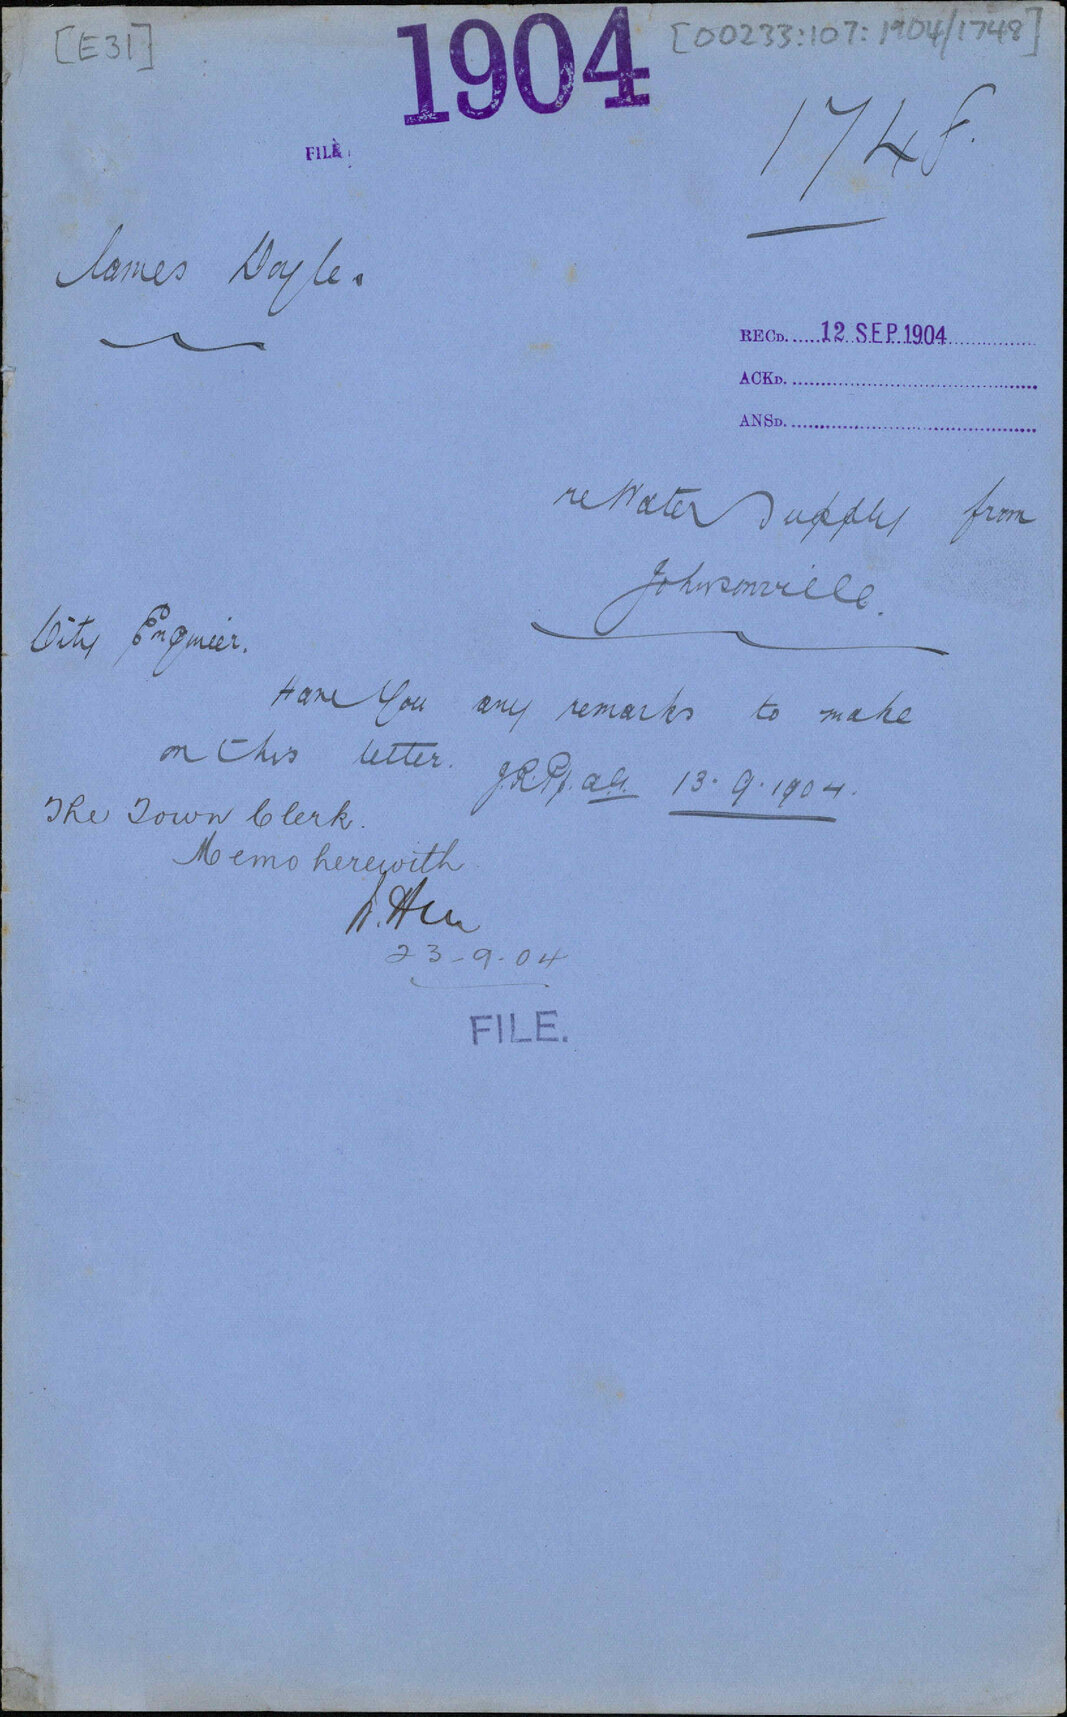 [E31]
1904
[00233:107:1904/1748]
FILE
1748.
James Doyle.
RECD. 12 SEP. 1904
ACKD.
ANSD.
re Water Supply from
Johnsonville.
City Engineer.
Have you any remarks to make
on this letter. 13.9.1904.
The Town Clerk.
Memo herewith
23-9-04
FILE.